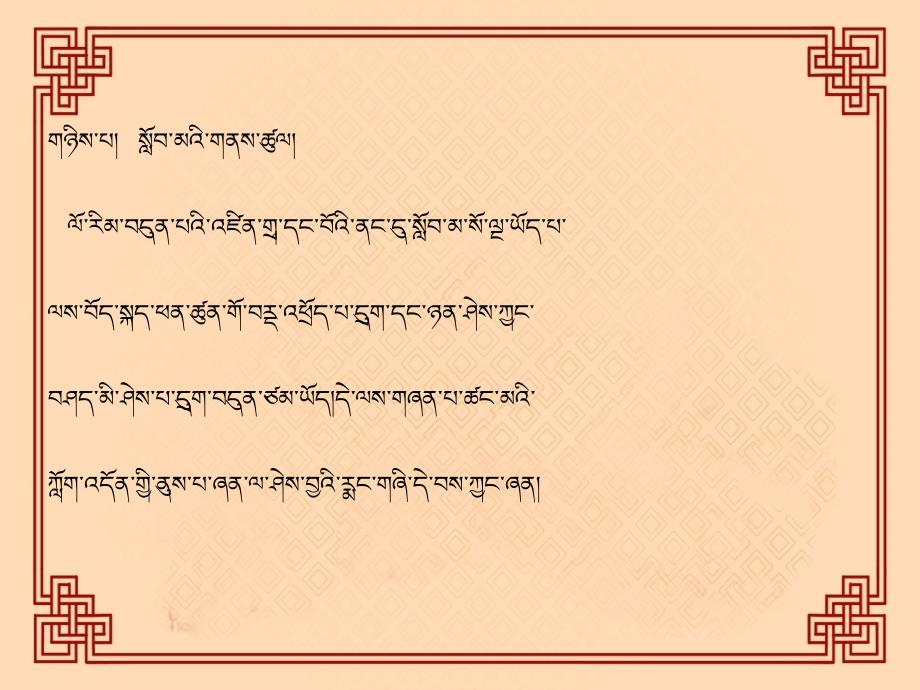 གཉིས་པ།   སློབ་མའི་གནས་ཚུལ།
ལོ་རིམ་བདུན་པའི་འཛིན་གྲྭ་དང་བོའི་ནང་དུ་སློབ་མ་སོ་ལྔ་ཡོད་པ་
ལས་བོད་སྐད་ཕན་ཚུན་གོ་བརྡ་འཕྲོད་པ་དྲུག་དང་ཉན་ཤེས་ཀྱང་
བཤད་མི་ཤེས་པ་དྲུག་བདུན་ཙམ་ཡོད།དེ་ལས་གཞན་པ་ཚང་མའི་
ཀློག་འདོན་གྱི་ནུས་པ་ཞན་ལ་ཤེས་བྱའི་རྨང་གཞི་དེ་བས་ཀྱང་ཞན།